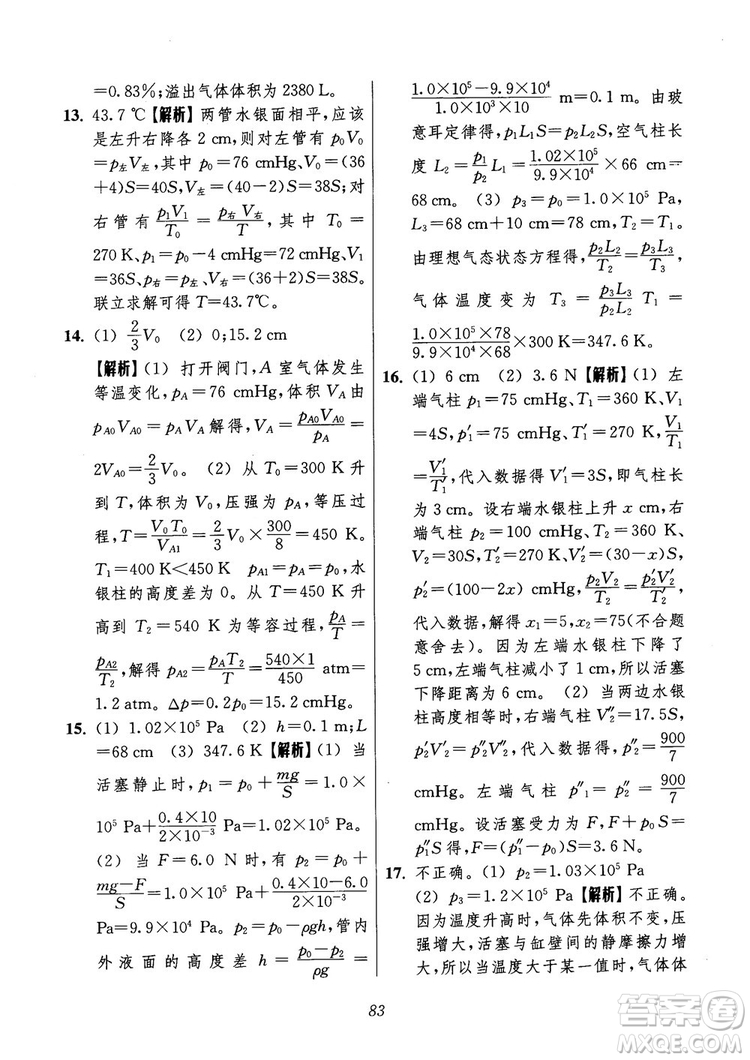 =0.83%；溢出气体体积为 2380 L。
13. 43.7 ℃【解析】两管水银面相平，应该
是左升右降各 2 cm，则对左管有 p₀V₀
=p左V左，其中 p₀=76 cmHg、V₀=(36
+4)S=40S，V左=(40-2)S=38S；对
右管有 p₁V₁/T₀ = p右V右/T，其中 T₀=
270 K、p₁=p₀-4 cmHg=72 cmHg、V₁
=36S、p右=p左、V右=(36+2)S=38S。
联立求解可得 T=43.7℃。
14. (1) 2/3 V₀ (2) 0；15.2 cm
【解析】(1) 打开阀门，A 室气体发生
等温变化，pA=76 cmHg，体积 VA由
pA0VA0=pAVA解得，VA=pA0VA0/pA=
2VA0=2/3 V₀。(2) 从 T₀=300 K 升
到 T，体积为 V₀，压强为 pA，等压过
程，T=V₀T₀/VA1=2/3 V₀×300/8=450 K。
T₁=400 K<450 K pA1=pA=p₀，水
银柱的高度差为 0。从 T=450 K 升
高到 T₂=540 K 为等容过程，pA/T=
pA2/T₂，解得 pA2=pAT₂/T=540×1/450 atm=
1.2 atm。Δp=0.2p₀=15.2 cmHg。
15. (1) 1.02×10⁵ Pa (2) h=0.1 m；L
=68 cm (3) 347.6 K【解析】(1) 当
活塞静止时，p₁=p₀+mg/S=1.0×
10⁵ Pa+0.4×10/2×10⁻³ Pa=1.02×10⁵ Pa。
(2) 当 F=6.0 N 时，有 p₂=p₀+
mg-F/S=1.0×10⁵ Pa+0.4×10-6.0/2×10⁻³
Pa=9.9×10⁴ Pa。p₂=p₀-ρgh，管内
外液面的高度差 h=p₀-p₂/ρg=
1.0×10⁵-9.9×10⁴/1.0×10³×10 m=0.1 m。由玻
意耳定律得，p₁L₁S=p₂L₂S，空气柱长
度 L₂=p₁/p₂ L₁=1.02×10⁵/9.9×10⁴×66 cm=
68 cm。(3) p₃=p₀=1.0×10⁵ Pa，
L₃=68 cm+10 cm=78 cm，T₂=T₁。
由理想气态状态方程得，p₂L₂/T₂=p₃L₃/T₃，
气体温度变为 T₃=p₃L₃/p₂L₂ T₁=
1.0×10⁵×78/9.9×10⁴×68×300 K=347.6 K。
16. (1) 6 cm (2) 3.6 N【解析】(1) 左
端气柱 p₁=75 cmHg、T₁=360 K、V₁
=4S，p′₁=75 cmHg、T′₁=270 K，V₁/T₁
=V′₁/T′₁，代入数据得 V′₁=3S，即气柱长
为 3 cm。设右端水银柱上升 x cm，右
端气柱 p₂=100 cmHg、T₂=360 K、
V₂=30S，T′₂=270 K、V′₂=(30-x)S，
p′₂=(100-2x) cmHg，p₂V₂/T₂=p′₂V′₂/T′₂，
代入数据，解得 x₁=5，x₂=75(不合题
意舍去)。因为左端水银柱下降了
5 cm，左端气柱减小了 1 cm，所以活塞
下降距离为 6 cm。(2) 当两边水银
柱高度相等时，右端气柱 V″₂=17.5S，
p′₂V′₂=p″₂V″₂，代入数据，得 p″₂=900/7
cmHg。左端气柱 p″₁=p″₂=900/7
cmHg。设活塞受力为 F，F+p₀S=
p″₁S，F=(p″₁-p₀)S=3.6 N。
17. 不正确。(1) p₂=1.03×10⁵ Pa
(2) p₃=1.2×10⁵ Pa【解析】不正确。
因为温度升高时，气体先体积不变，压
强增大，活塞与缸壁间的静摩擦力增
大，所以当温度大于某一值时，气体体
83
答案圈
MXQE.COM